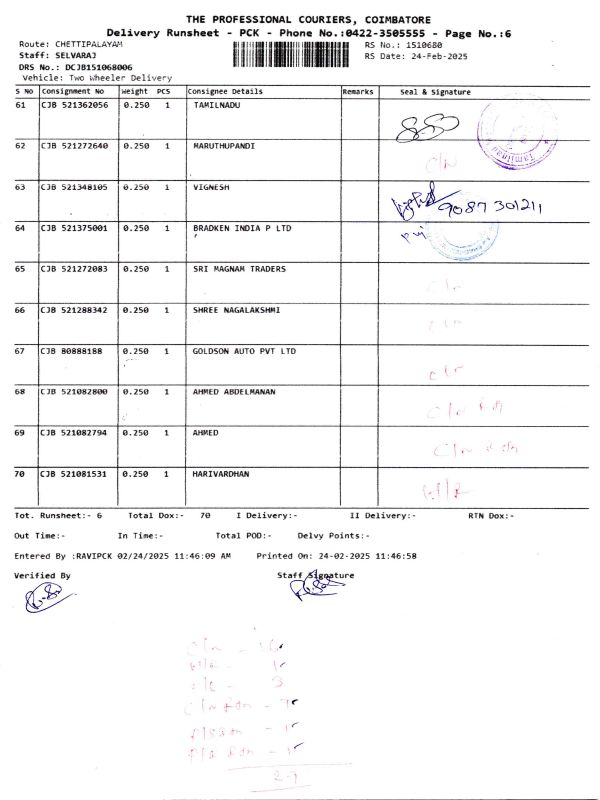 THE PROFESSIONAL COURIERS, COIMBATORE
Delivery Runsheet - PCK - Phone No.:0422-3505555 - Page No.:6
Route: CHETTIPALAYAM RS No.: 1510680
Staff: SELVARAJ RS Date: 24-Feb-2025
DRS No.: DCJB151068006
Vehicle: Two Wheeler Delivery
S No Consignment No Weight PCS Consignee Details Remarks Seal & Signature
61 CJB 521362056 0.250 1 TAMILNADU
62 CJB 521272640 0.250 1 MARUTHUPANDI
63 CJB 521348105 0.250 1 VIGNESH 9087 301211
64 CJB 521375001 0.250 1 BRADKEN INDIA P LTD
65 CJB 521272083 0.250 1 SRI MAGNAM TRADERS
66 CJB 521288342 0.250 1 SHREE NAGALAKSHMI
67 CJB 80888188 0.250 1 GOLDSON AUTO PVT LTD
68 CJB 521082800 0.250 1 AHMED ABDELMANAN
69 CJB 521082794 0.250 1 AHMED
70 CJB 521081531 0.250 1 HARIVARDHAN
Tot. Runsheet:- 6 Total Dox:- 70 I Delivery:- II Delivery:- RTN Dox:-
Out Time:- In Time:- Total POD:- Delvy Points:-
Entered By :RAVIPCK 02/24/2025 11:46:09 AM Printed On: 24-02-2025 11:46:58
Verified By Staff Signature
29